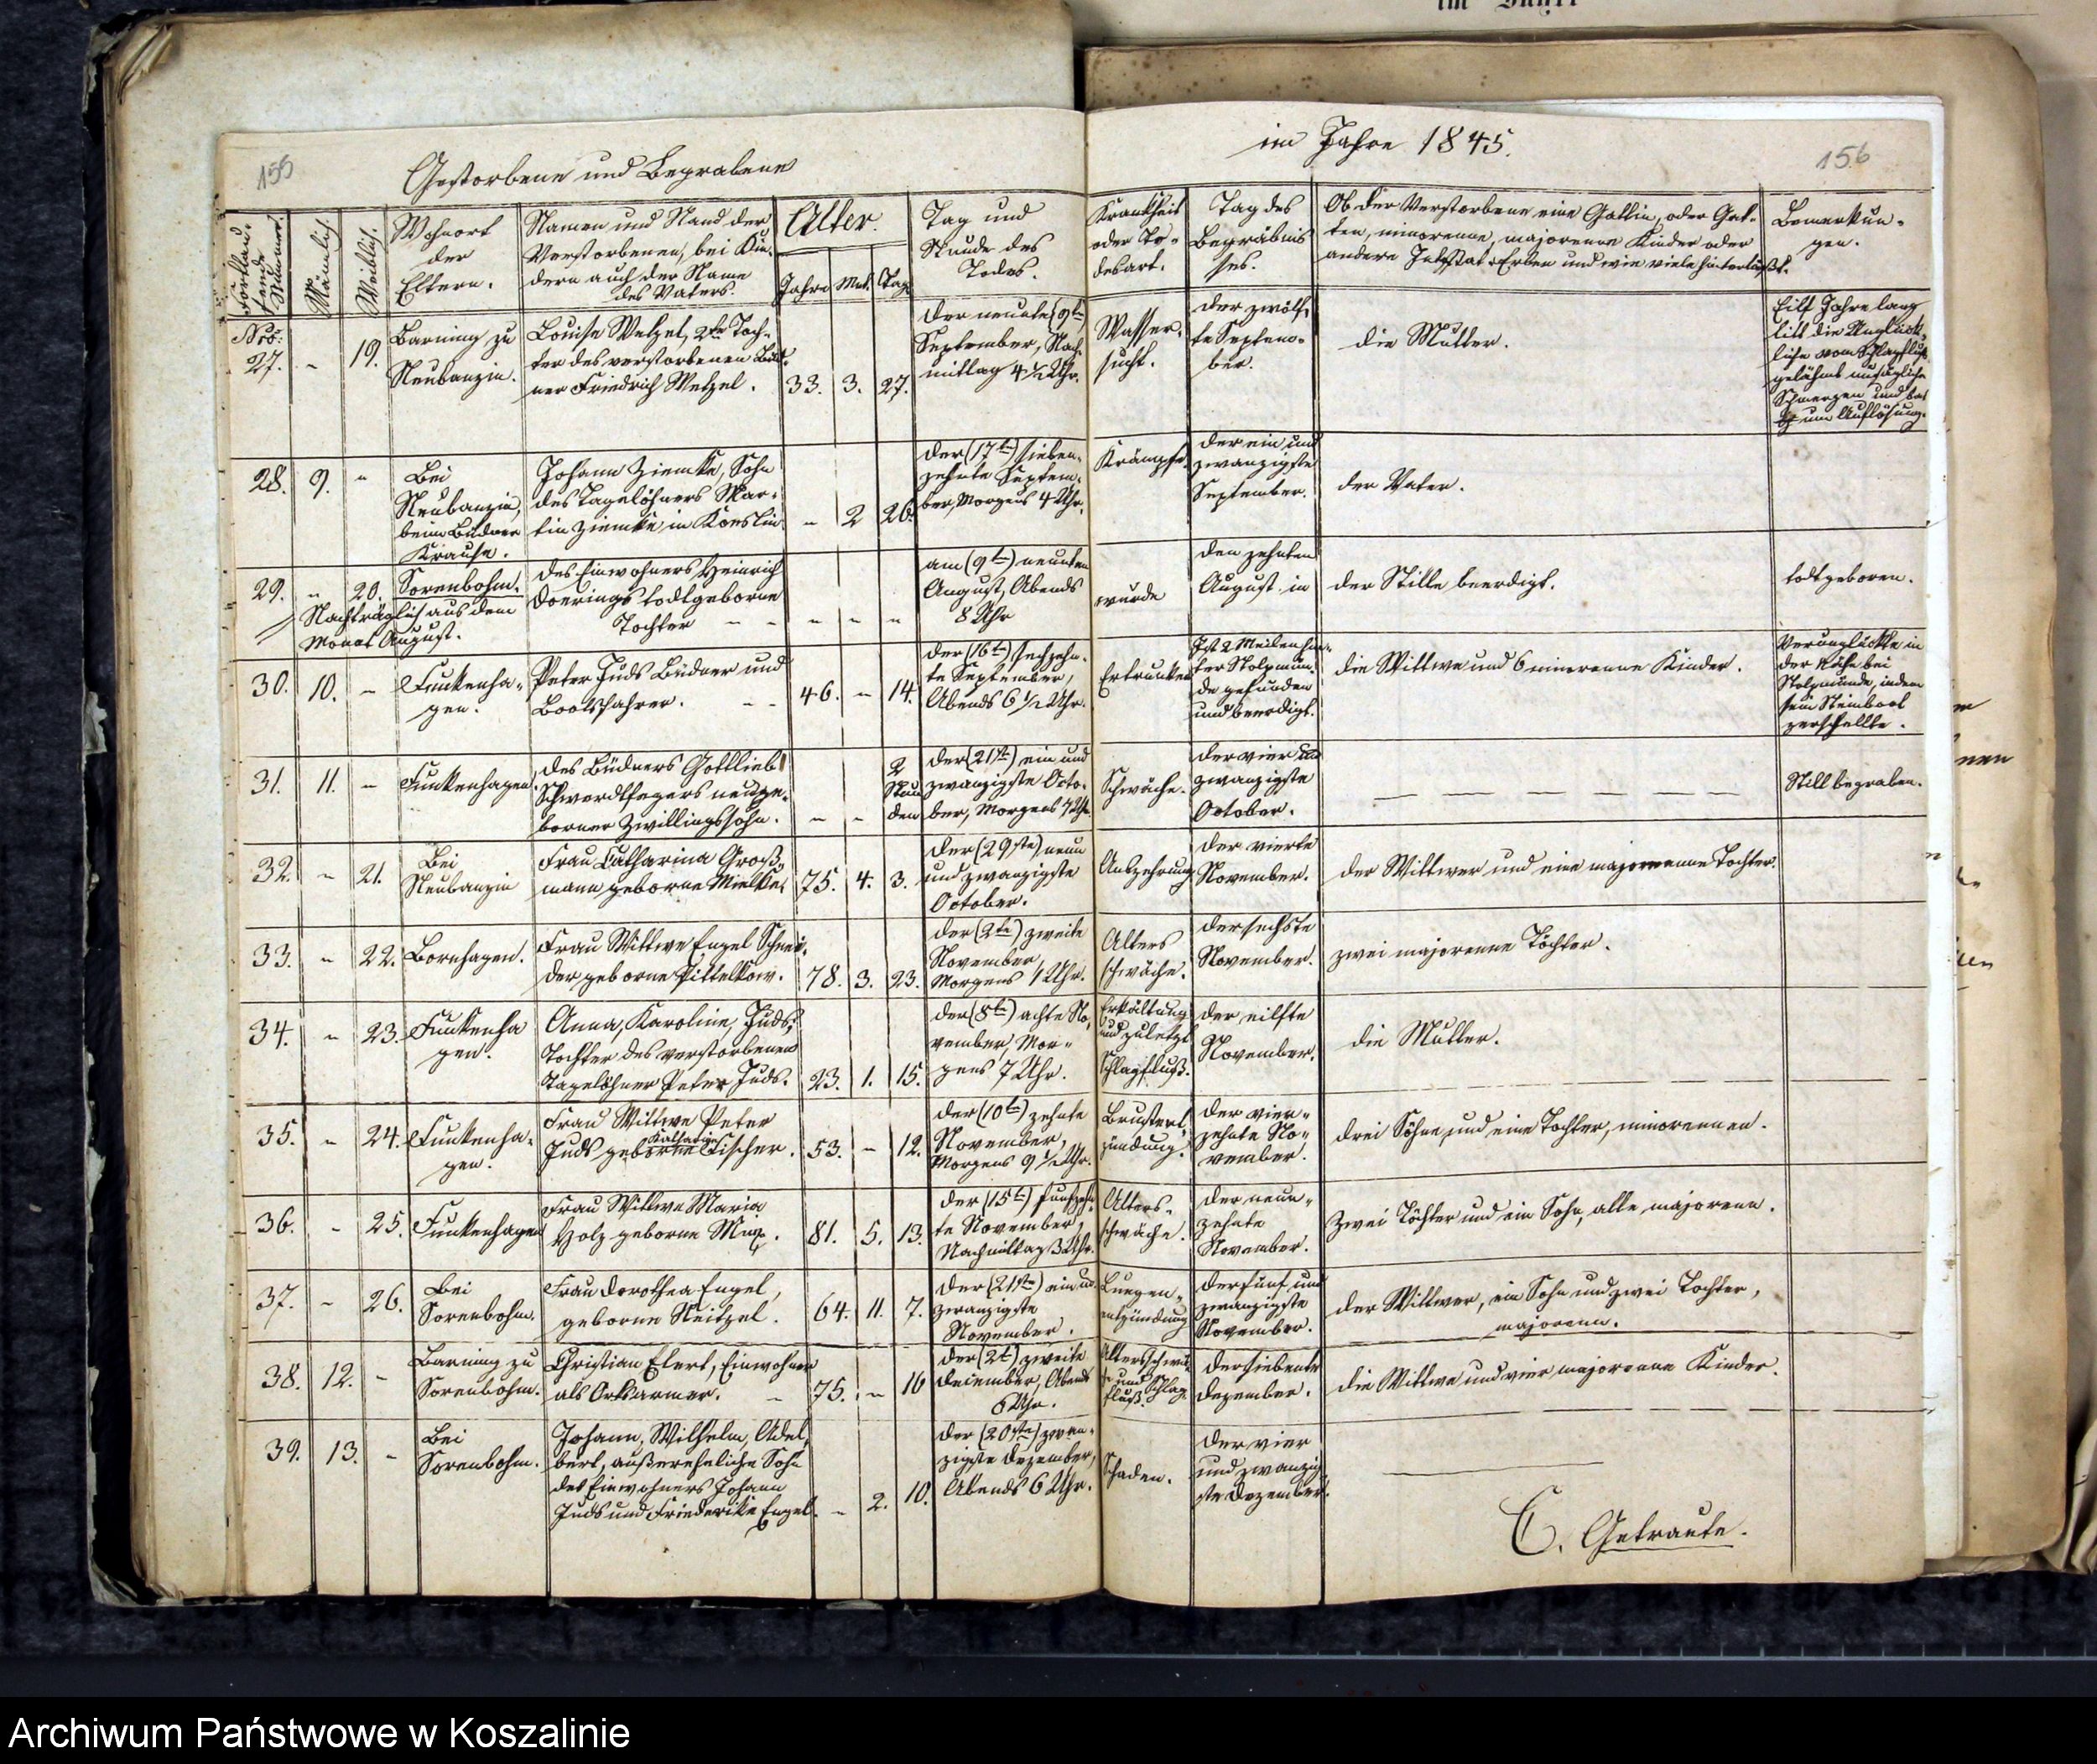 155
Gestorbene und Begrabene
Fortlau-
fende
Nummer.
Männlich.
Weiblich.
Wohnort
der
Eltern.
Namen und Stand der
Verstorbenen, bei Kin-
dern auch der Name
des Vaters.
Alter.
Jahre
Mt.
Tag
Tag und
Stunde des
Todes.
im Jahre 1845.
156
Krankheit
oder To-
desart.
Tag des
Begräbnis
ses.
Ob der Verstorbene eine Gattin, oder Gat-
ten, minorenne, majorenne Kinder oder
andere Erben und wie viele hinterläßt.
Bemerkun-
gen.
Nro:
27.
-
19.
Barning zu
Neubanzin.
Louise Wetzel, 2te Toch-
ter des verstorbenen Büd-
ner Friedrich Wetzel.
33. 3. 27.
der neunte (9te)
September, Nach-
mittag 4 1/2 Uhr.
Wasser-
sucht.
der zwölf-
te Septem-
ber.
die Mutter.
Eilf Jahre lang
litt die Unglück-
liche vom Schlagfluß
gelähmt unsägliche
Schmerzen und bat
um Auflösung.
28. 9. -
Bei
Neubanzin,
beim Büdner
Krause.
Johann Ziemke, Sohn
des Tagelöhners Mar-
tin Ziemke in Koeslin
- 2 26.
der (17te) sieben-
zehnte Septem-
ber, Morgens 4 Uhr.
Krämpfe.
der ein und
zwanzigste
September.
der Vater.
29. - 20.
Sorenbohm.
Nachträglich aus dem
Monat August.
des Einwohners Heinrich
Doerings todtgeborne
Tochter - - - - -
am (9ten) neunten
August, Abends
8 Uhr
wurde
den zehnten
August in
der Stille beerdigt.
todtgeboren.
30. 10. -
Funkenha-
gen.
Peter Juds Büdner und
Bootsfahrer. - -
46. - 14.
der (16te) sechzehn-
te September,
Abends 6 1/2 Uhr.
Ertrunken
Ist 2 Meilen hin-
ter Stolpmün-
de gefunden
und beerdigt.
die Wittwe und 6 minorenne Kinder.
Verunglückte in
der Nähe bei
Stolpmünde, indem
sein Steinboot
zerschellte.
31. 11. -
Funkenhagen.
des Büdners Gottlieb
Schwerdtfegers neuge-
borner Zwillingssohn.
- -
2
Stun
den
der (21te) ein und
zwanzigste Octo-
ber, Morgens 7 Uhr.
Schwäche.
der vier und
zwanzigste
October.
— — — — — — — —
Still begraben.
32. - 21.
Bei
Neubanzin
Frau Catharina Groß-
mann geborne Mielke.
75. 4. 3.
der (29ste) neun
und zwanzigste
October.
Auszehrung
der vierte
November.
der Wittwer und eine majorenne Tochter.
33. - 22.
Bornhagen.
Frau Wittwe Engel Schnei-
der geborne Pittelkow.
78. 3. 23.
der (2te) zweite
November,
Morgens 1 Uhr.
Alters
schwäche.
der sechste
November.
zwei majorenne Töchter.
34. - 23.
Funkenha
gen.
Anna, Karoline, Juds,
Tochter des verstorbenen
Tagelöhner Peter Juds.
23. 1. 15.
der (8te) achte No-
vember, Mor-
gens 7 Uhr.
Erkältung
und zuletzt
Schlagfluß.
der eilfte
November.
die Mutter.
35. - 24.
Funkenha-
gen.
Frau Wittwe Peter
Juds geborne Fischer.
53. - 12.
der (10te) zehnte
November,
Morgens 9 1/2 Uhr.
Brustent-
zündung.
der vier-
zehnte No-
vember.
drei Söhne und eine Tochter, minorennen.
36. - 25.
Funkenhagen
Frau Wittwe Maria
Holz geborne Mix.
81. 5. 13.
der (15te) funfzehn-
te November,
Nachmittag 3 Uhr.
Alters-
schwäche.
der neun-
zehnte
November.
Zwei Töchter und ein Sohn, alle majorenn.
37. - 26.
Bei
Sorenbohm.
Frau Dorothea Engel,
geborne Neitzel.
64. 11. 7.
der (21ste) ein und
zwanzigste
November.
Lungen-
entzündung
der fünf und
zwanzigste
November.
der Wittwer, ein Sohn und zwei Tochter,
majorenn.
38. 12. -
Barning zu
Sorenbohm.
Christian Ehert, Einwohner
als Ortsarmer. -
75. - 16
der (2te) zweite
December, Abends
6 Uhr.
Altersschwä-
che und Schlag-
fluß.
der siebente
Dezember.
die Wittwe und vier majorenne Kinder.
39. 13. -
Bei
Sorenbohm.
Johann, Wilhelm, Adel-
bert, außereheliche Sohn
des Einwohners Johann
Juds und Friederike Engel.
- 2. 10.
der (20ste) zwan-
zigste Dezember,
Abends 6 Uhr.
Schaden.
der vier
und zwanzig-
ste Dezember.
C. Getraute.
Archiwum Państwowe w Koszalinie